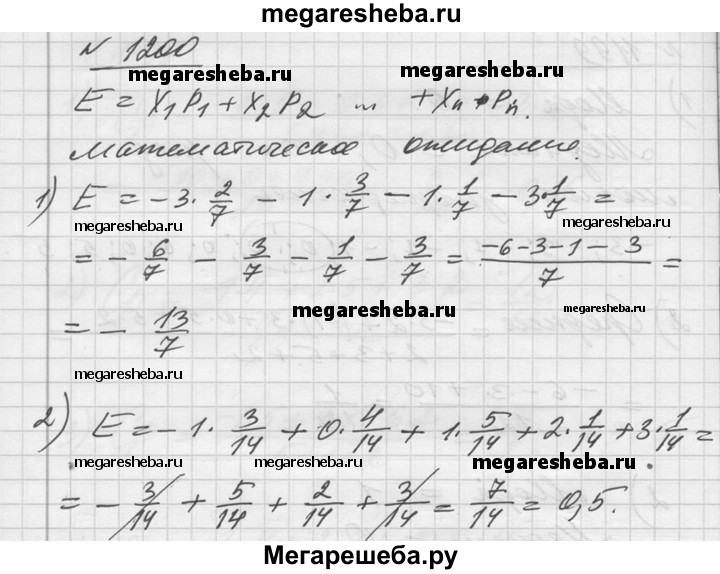 megaresheba.ru
№ 1200
megaresheba.ru megaresheba.ru
E = x₁P₁ + x₂P₂ ... + xₙ · Pₙ.
математическое ожидание.
1) E = -3 · 2/7 - 1 · 3/7 - 1 · 1/7 - 3 · 1/7 =
megaresheba.ru megaresheba.ru
= - 6/7 - 3/7 - 1/7 - 3/7 = (-6-3-1-3)/7 =
megaresheba.ru megaresheba.ru
= - 13/7
megaresheba.ru
2) E = -1 · 3/14 + 0 · 4/14 + 1 · 5/14 + 2 · 1/14 + 3 · 1/14 =
megaresheba.ru megaresheba.ru megaresheba.ru
= - 3/14 + 5/14 + 2/14 + 3/14 = 7/14 = 0,5.
Мегарешеба.ру